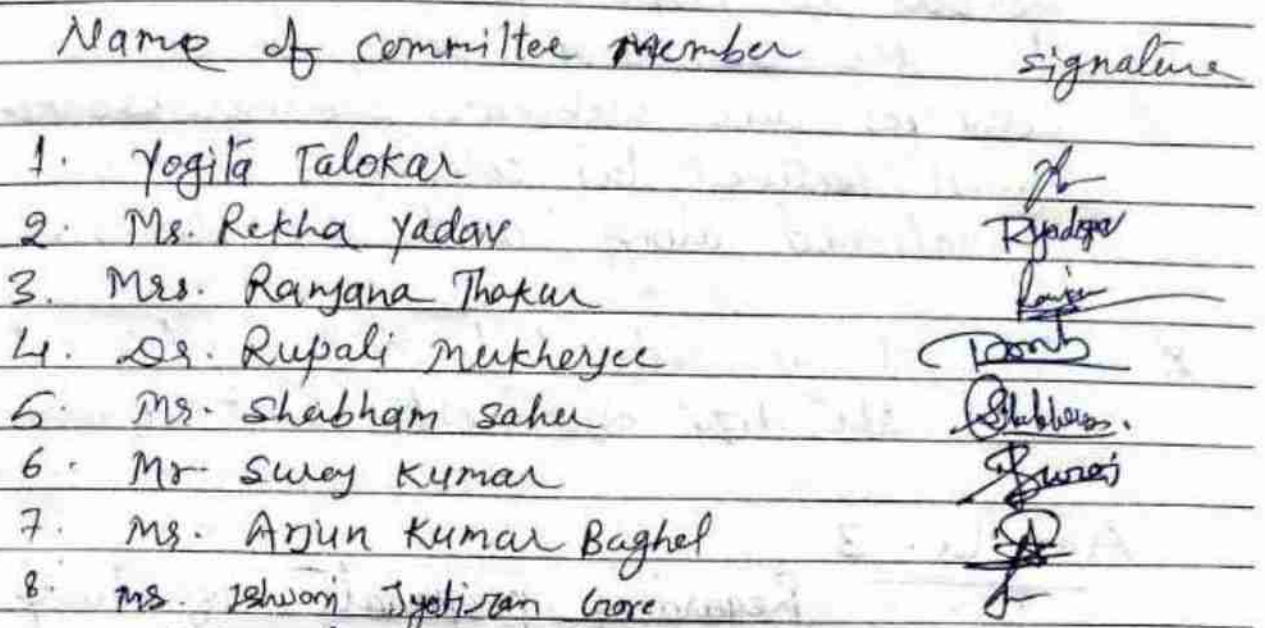 Name of committee member signature
1. Yogita Talokar
2. Ms. Rekha Yadav Ryadav
3. Mrs. Ranjana Thakur
4. Dr. Rupali Mukherjee
5. Mr. Shubham Sahu Shubham.
6. Mr Suraj Kumar Suraj
7. Mr. Arjun Kumar Baghel
8. Ms. Ishwari Jyotiram Gore